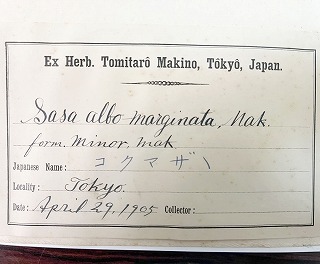 Ex Herb. Tomitarô Makino, Tôkyô, Japan.
Sasa albo marginata, Mak.
form. Minor, Mak
Japanese Name: コクマザサ
Locality: Tokyo.
Date: April 29, 1905 Collector: